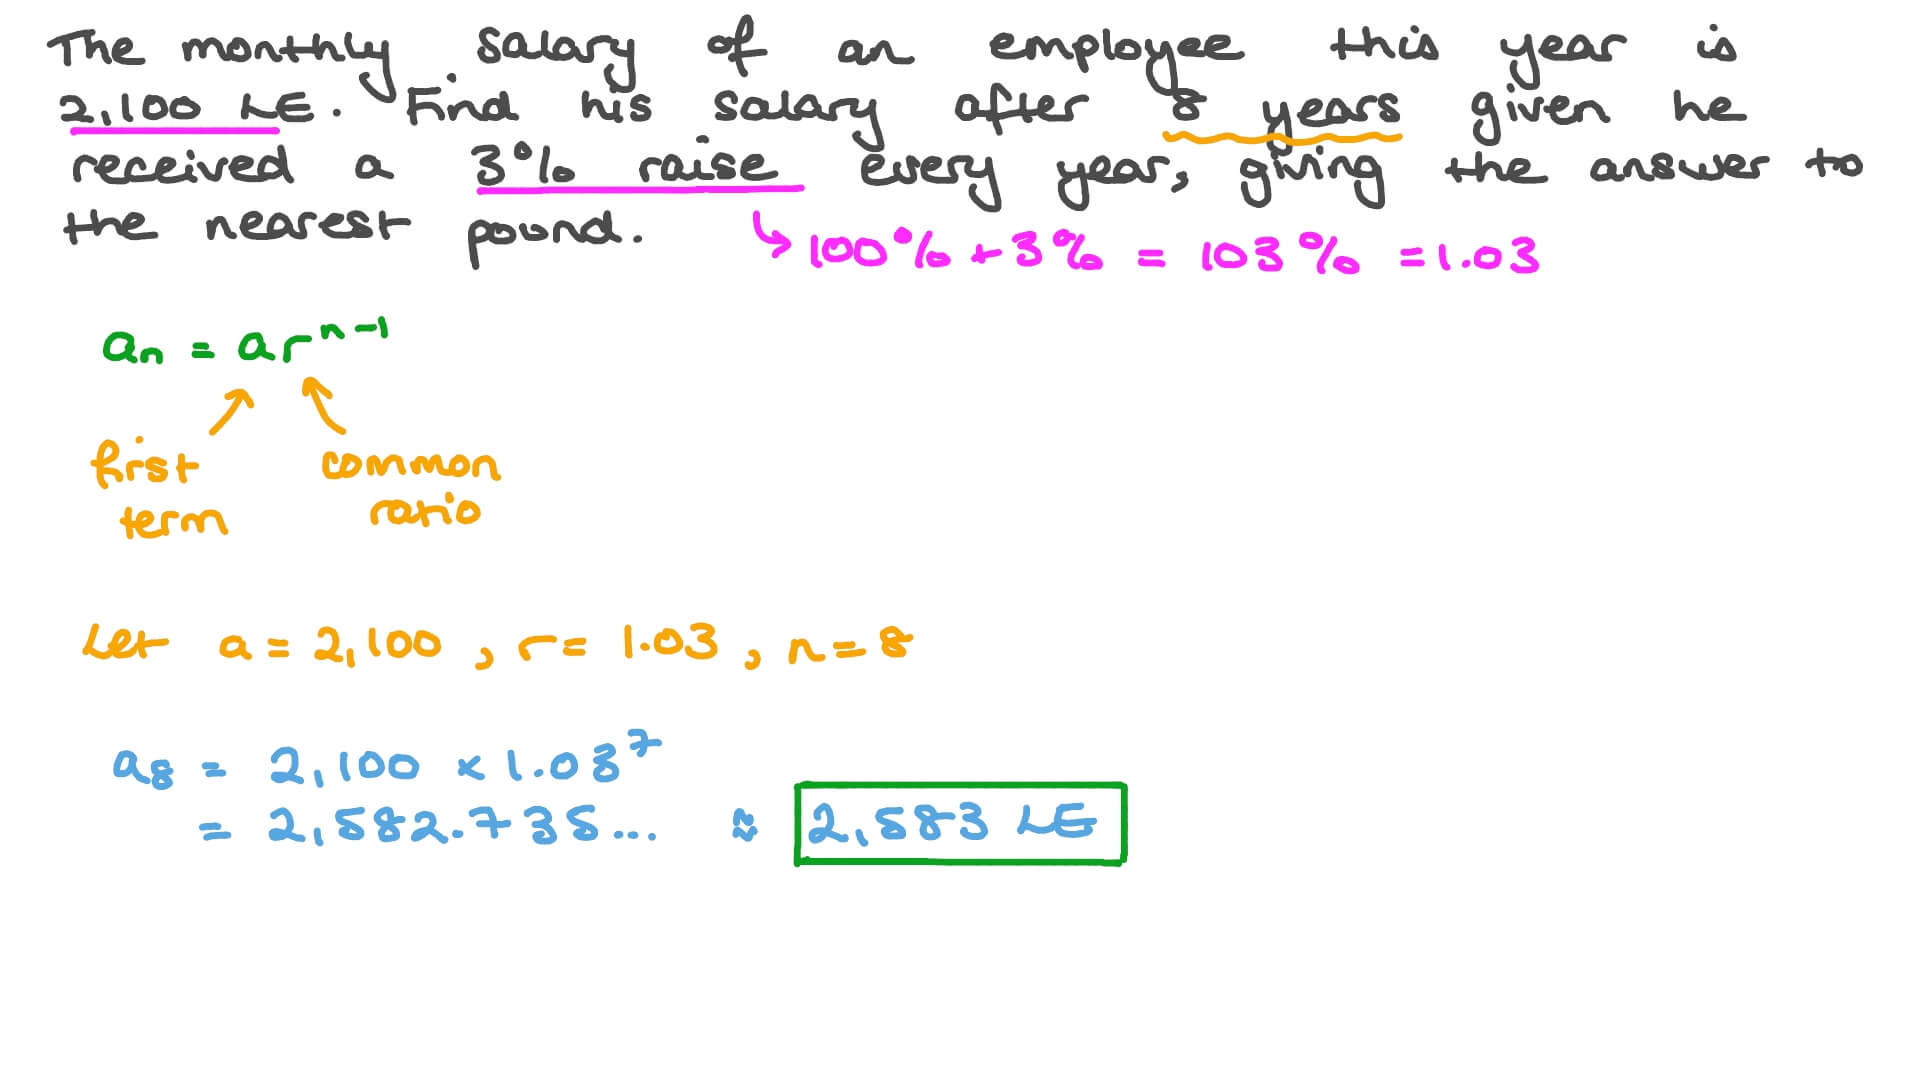 The monthly salary of an employee this year is
2,100 LE. Find his salary after 8 years given he
received a 3% raise every year, giving the answer to
the nearest pound.
↳ 100% + 3% = 103% = 1.03
aₙ = arⁿ⁻¹
first term
common ratio
Let a = 2,100 , r = 1.03 , n = 8
a₈ = 2,100 × 1.03⁷
= 2,582.735... ≈ 2,583 LE